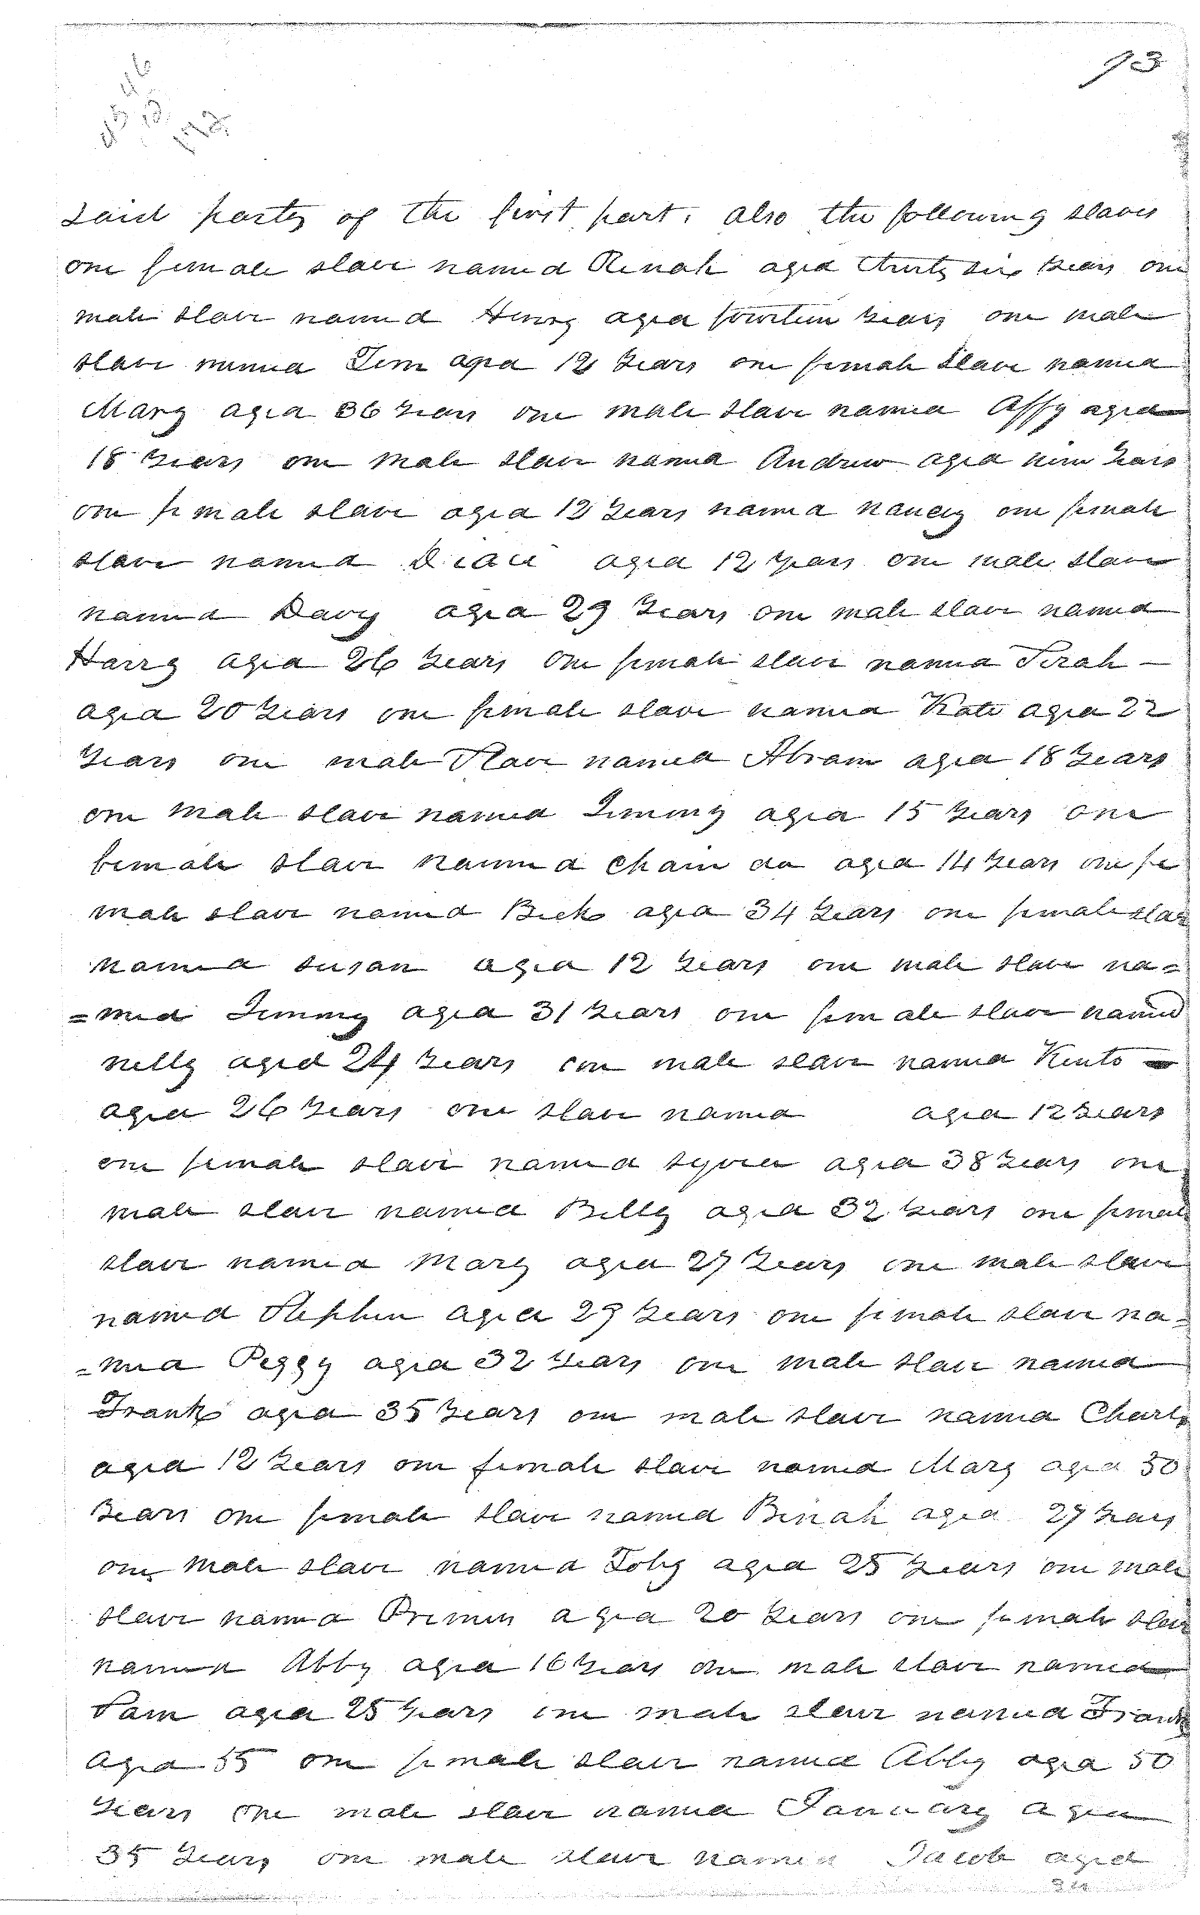 93
said party of the first part. also the following slaves
one female slave named Renah aged thirty six years one
male slave named Henry aged fourteen years one male
slave named Tom aged 12 years one female slave named
Mary aged 36 years one male slave named Affy aged
18 years one male slave named Andrew aged nine years
one female slave aged 12 years named nancy one female
slave named aged 12 years one male slave
named Davy aged 29 years one male slave named
Harry aged 26 years one female slave named Sirah -
aged 20 years one female slave named Kate aged 22
years one male Slave named Abram aged 18 years
one male slave named Jimmy aged 15 years one
female slave named aged 14 years one fe
male slave named Beck aged 34 years one female slave
named susan aged 12 years one male slave na=
=med Jimmy aged 31 years one female slave named
nelly aged 24 years one male slave named Kento
aged 26 years one slave named aged 12 years
one female slave named aged 38 years one
male slave named Billy aged 32 years one female
slave named Mary aged 27 years one male slave
named Stephen aged 29 years one female slave na=
=med Peggy aged 32 years one male slave named
Frank aged 35 years one male slave named Charls
aged 12 years one female slave named Mary aged 50
years one female slave named Binah aged 27 years
one male slave named Toby aged 25 years one male
slave named Primus aged 20 years one female slave
named Abby aged 16 years one male slave named
Sam aged 25 years one male slave named Frank
aged 55 one female slave named Abby aged 50
years one male slave named January aged
35 years one male slave named Jacob aged